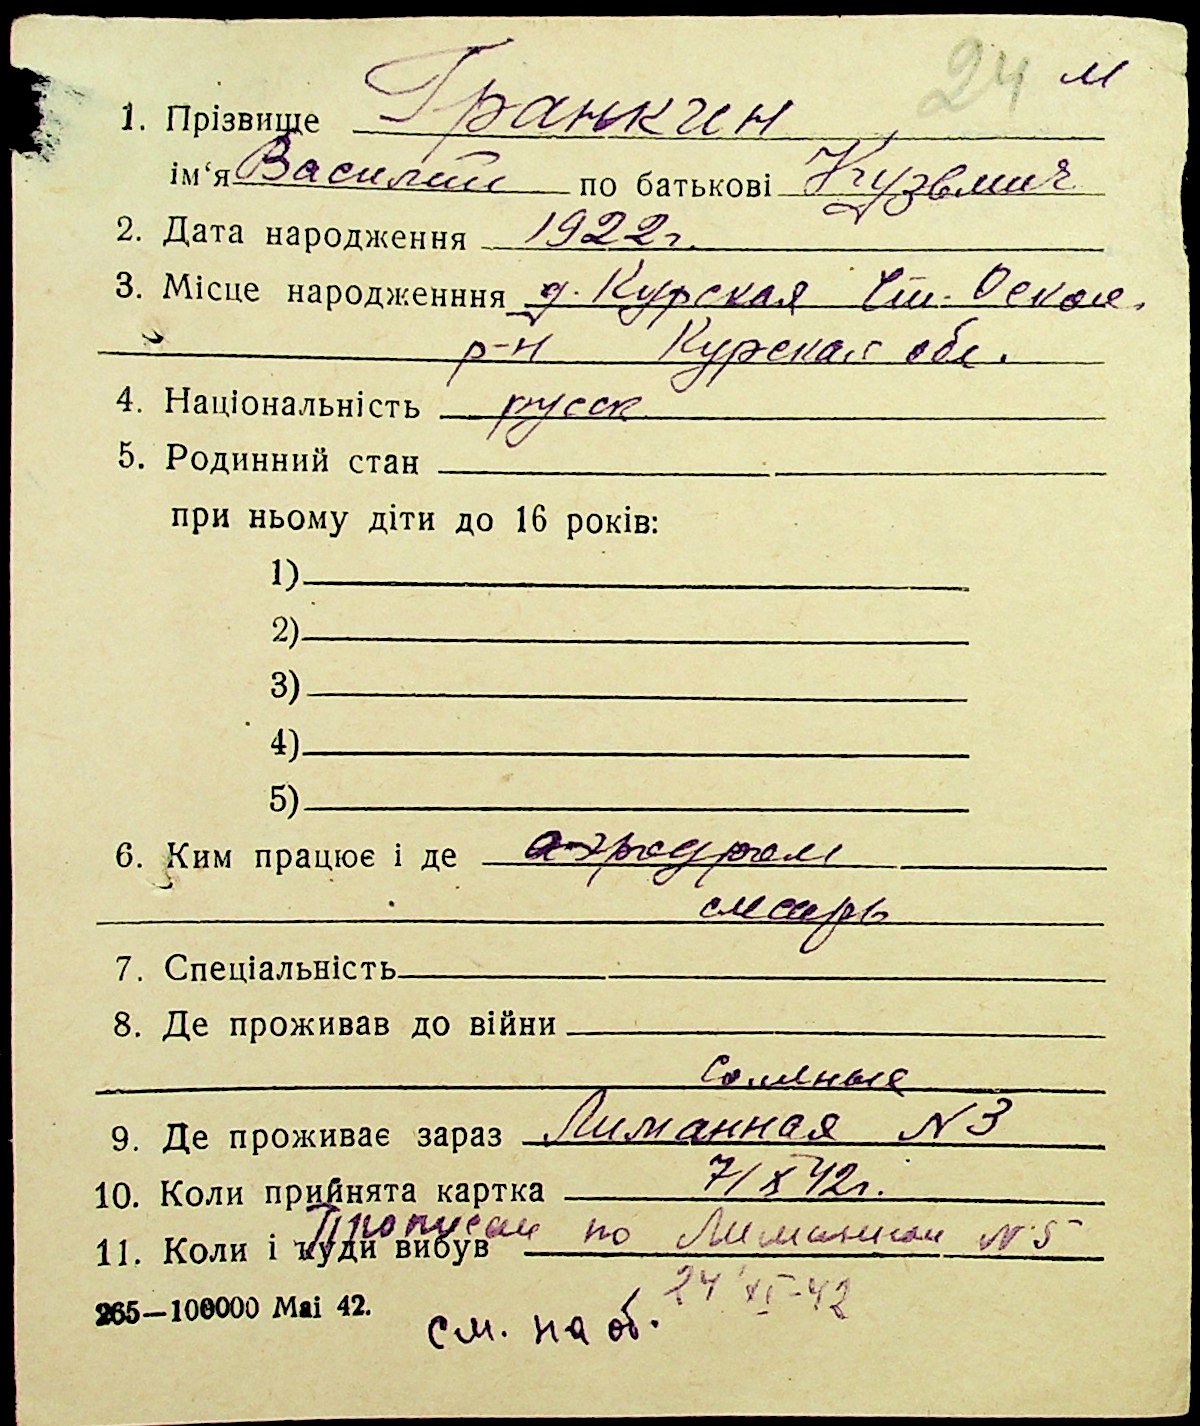 24 м
1. Прізвище Гранкин
ім‘я Василий по батькові Кузьмич
2. Дата народження 1922г.
3. Місце народженння д. Курская Ст. Оскол.
р-н Курская обл.
4. Національність русск
5. Родинний стан
при ньому діти до 16 років:
1)
2)
3)
4)
5)
6. Ким працює і де аэродром
7. Спеціальність
8. Де проживав до війни
9. Де проживає зараз Лиманная N 3
10. Коли прийнята картка 7/X 42г.
Прописан по Лиманной N 5
11. Коли і куди вибув
24 XI-42
265—100000 Маі 42.
см. на об.